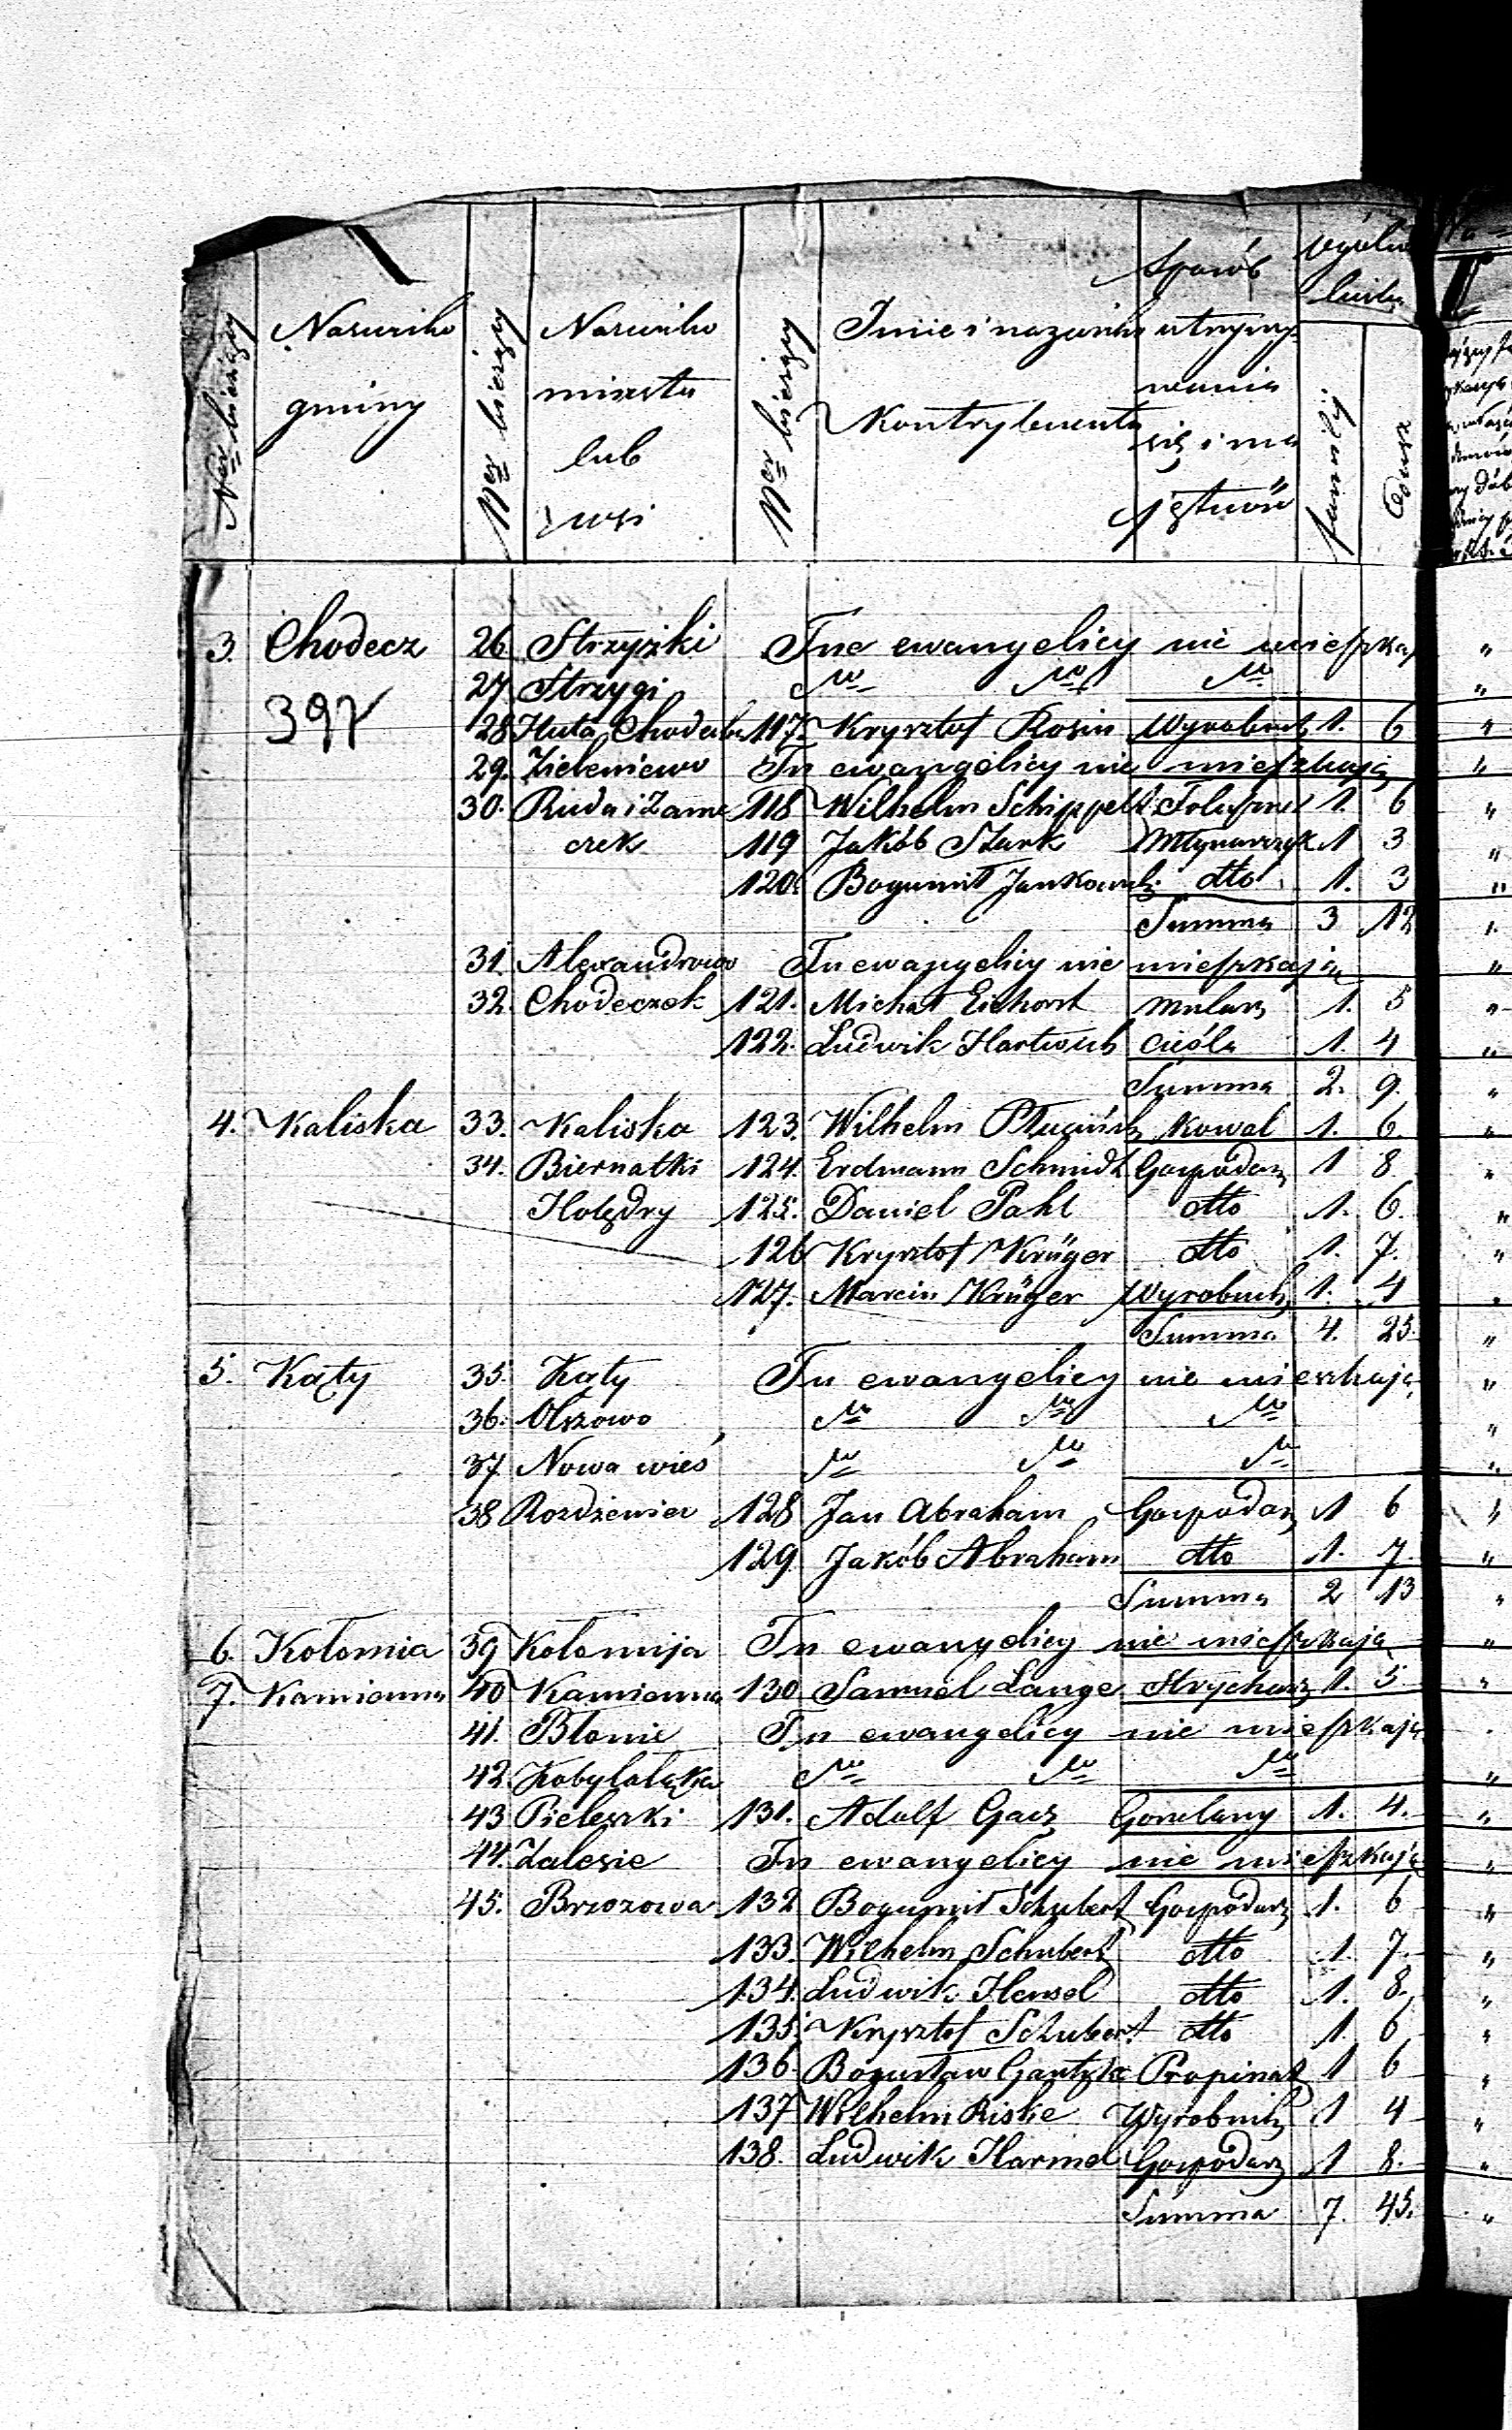 Nazwisko gminy
Nazwisko miasta lub wsi
Imie i nazwisko Kontrybuenta
Sposób utrzymywania się i ma jątność
familij
dusz
3. Chodecz 26. Strzyżki Tu ewangelicy nie mieszkają "
397
27 Strzygi dto dto dto "
28 Huta Chodecka 117. Krysztof Rosin Wyrobnik 1. 6 "
29. Zieleniewo Tu ewangelicy nie mieszkają "
30. Ruda i Zame 118 Wilhelm Schippelt 1. 6 "
czek 119 Jakób Stark Młynarczyk 1 3 "
120. Bogumił Jankowski dtto 1. 3 "
Summa 3 12 "
31. Alexandrowo Tu ewangelicy nie mieszkają "
32. Chodeczek 121. Michał Eichorst Mularz 1. 5 "
122. Ludwik Hartwich Cieśla 1. 4 "
Summa 2. 9. "
4. Kaliska 33. Kaliska 123. Wilhelm Kowal 1. 6. "
34. Biernatki 124. Erdmann Schmidt Gospodarz 1 8 "
Holędry 125. Daniel Pahl dtto 1. 6. "
126 Krysztof Krüger dtto 1. 7. "
127. Marcin Krüger Wyrobnik 1. 4 "
Summa 4. 25. "
5. Kąty 35. Kąty Tu ewangelicy nie mieszkają "
36. Olszowo dto dto dto "
37 Nowa wieś dto dto dto "
38 128 Jan Abraham Gospodarz 1 6 "
129 Jakób Abraham dtto 1. 7. "
Summa 2 13 "
6. Kołomia 39 Kołomija Tu ewangelicy nie mieszkają "
7. Kamienna 40 Kamienna 130 Samuel Lange Strycharz 1. 5. "
41. Błonie Tu ewangelicy nie mieszkają "
42. Kobylałąka dto dto dto "
43 Pieleszki 131. Adolf Gorzelany 1. 4. "
44. Zalesie Tu ewangelicy nie mieszkają "
45. Brzozowa 132 Bogumił Schubert Gospodarz 1. 6 "
133. Wilhelm Schubert dtto 1. 7. "
134. Ludwik Hensel dtto 1. 8. "
135. Krysztof Schubert dtto 1. 6 "
136. Bogusław Propinat 1 6 "
137 Wilhelm Riske Wyrobnik 1 4 "
138. Ludwik Harmel Gospodarz 1 8. "
Summa 7. 45. "